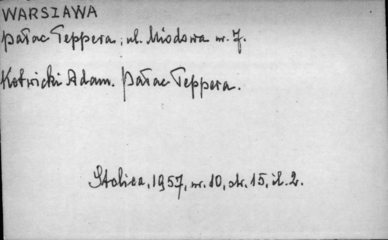 WARSZAWA
Pałac Teppera, ul. Miodowa nr. 7.
Kotwicki Adam. Pałac Teppera.
Stolica, 1957, nr. 10, str. 15, il. 2.